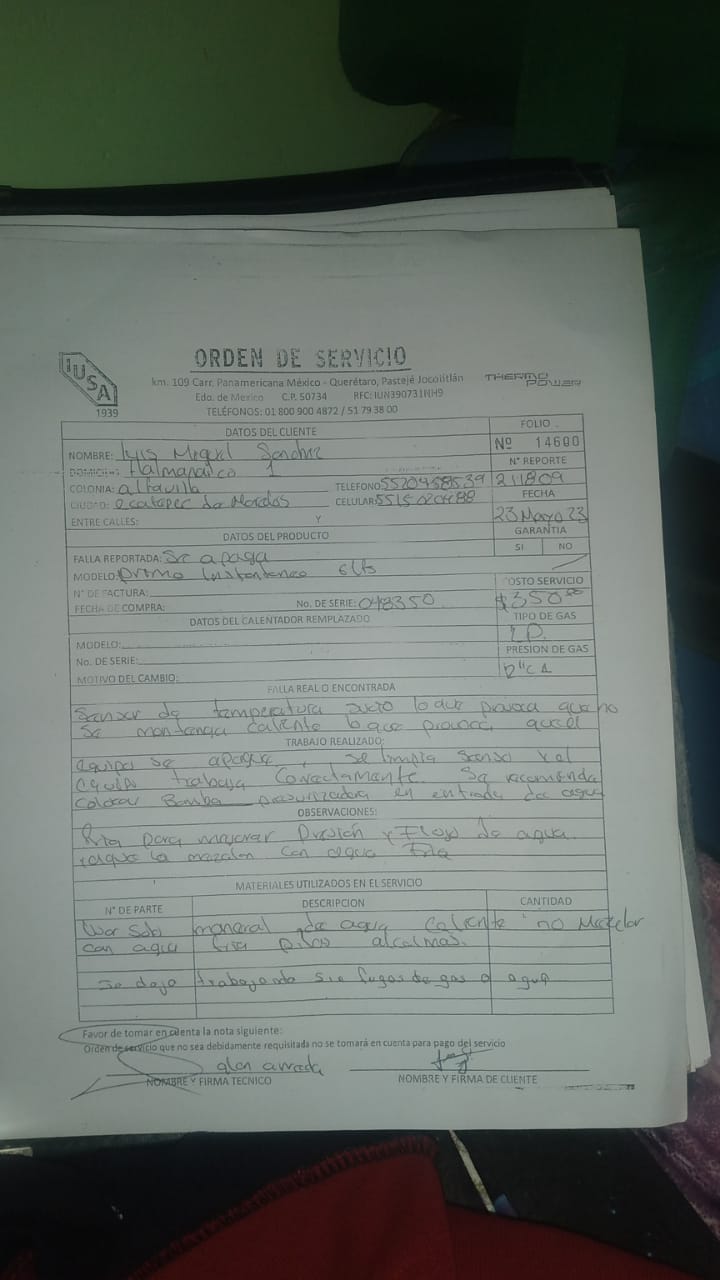 IUSA
1939
ORDEN DE SERVICIO
km. 109 Carr. Panamericana México - Querétaro, Pastejé Jocolitlán
Edo. de Mexico C.P. 50734 RFC: IUN390731NH9
TELÉFONOS: 01 800 900 4872 / 51 79 38 00
THERMO POWER
DATOS DEL CLIENTE
FOLIO
Nº 14600
NOMBRE: Luis Miguel Sanchez
N° REPORTE
DOMICILIO: tlalmanalco 1
COLONIA: altavilla TELEFONO: 5520458539
211809
CIUDAD: ecatepec de Morelos CELULAR: 5515020488
FECHA
ENTRE CALLES: Y
23 Mayo 23
DATOS DEL PRODUCTO
GARANTIA
SI NO
FALLA REPORTADA: Se apaga
MODELO: primo Instantaneo 6 lts
COSTO SERVICIO
N° DE FACTURA:
$350.00
FECHA DE COMPRA: No. DE SERIE: 048350
TIPO DE GAS
DATOS DEL CALENTADOR REMPLAZADO
LP.
MODELO:
PRESION DE GAS
No. DE SERIE:
MOTIVO DEL CAMBIO:
FALLA REAL O ENCONTRADA
Sensor de temperatura sucio lo que provoca que no
se mantenga caliente lo que provoca que el
TRABAJO REALIZADO:
equipo se apague, se limpia sensor y el
equipo trabaja Correctamente. Se recomienda
colocar Bomba presurizadora en entrada de agua
OBSERVACIONES:
fria para mejorar Presión y Flujo de agua.
ya que la mezclan con agua fria
MATERIALES UTILIZADOS EN EL SERVICIO
N° DE PARTE DESCRIPCION CANTIDAD
Usar solo maneral de agua caliente no Mezclar
con agua fria
se deja trabajando sin fugas de gas o agua
Favor de tomar en cuenta la nota siguiente:
Orden de servicio que no sea debidamente requisitado no se tomará en cuenta para pago del servicio
NOMBRE Y FIRMA TECNICO
NOMBRE Y FIRMA DE CLIENTE